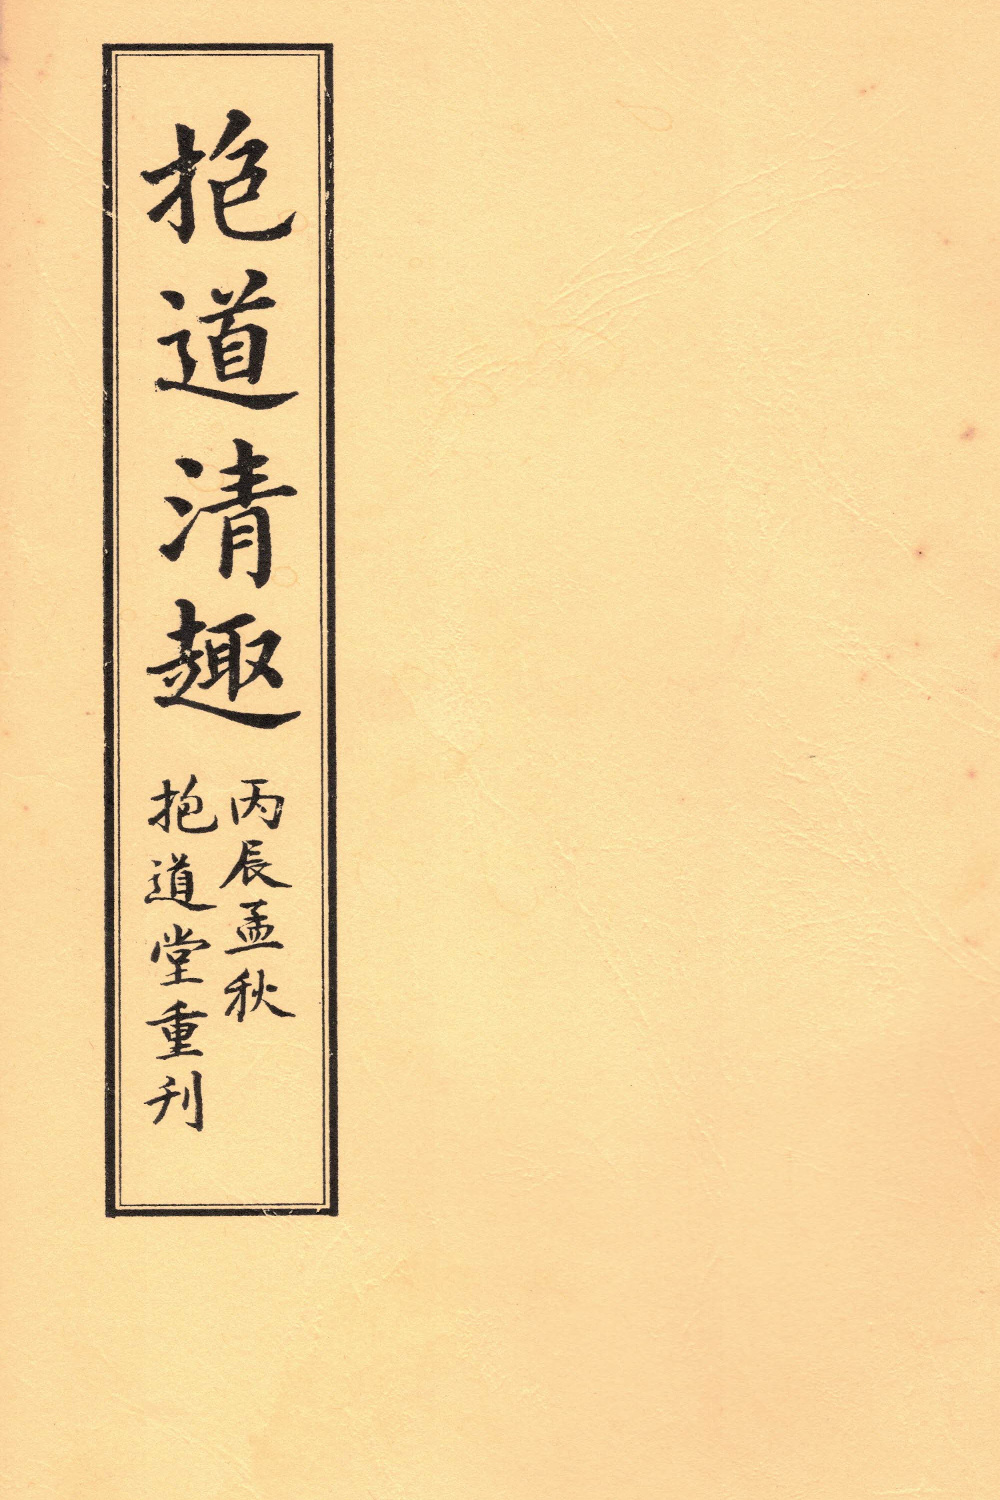 抱道清趣
丙辰孟秋
抱道堂重刊